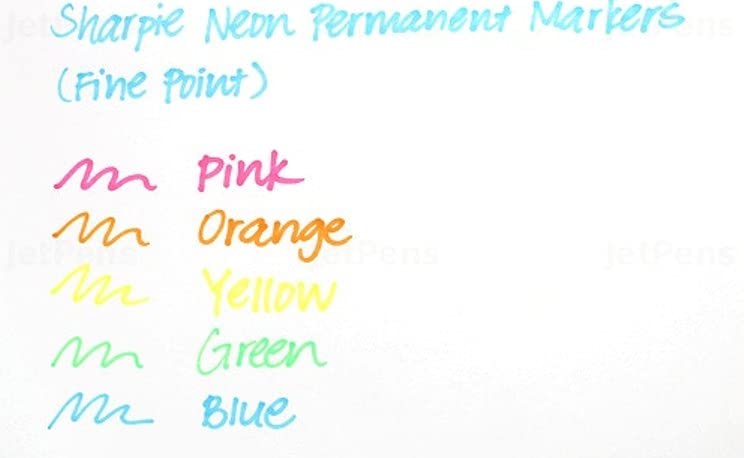 Sharpie Neon Permanent Markers
(Fine Point)
Pink
Orange
Yellow
Green
Blue
JetPens
JetPens
JetPens
JetPens
JetPens